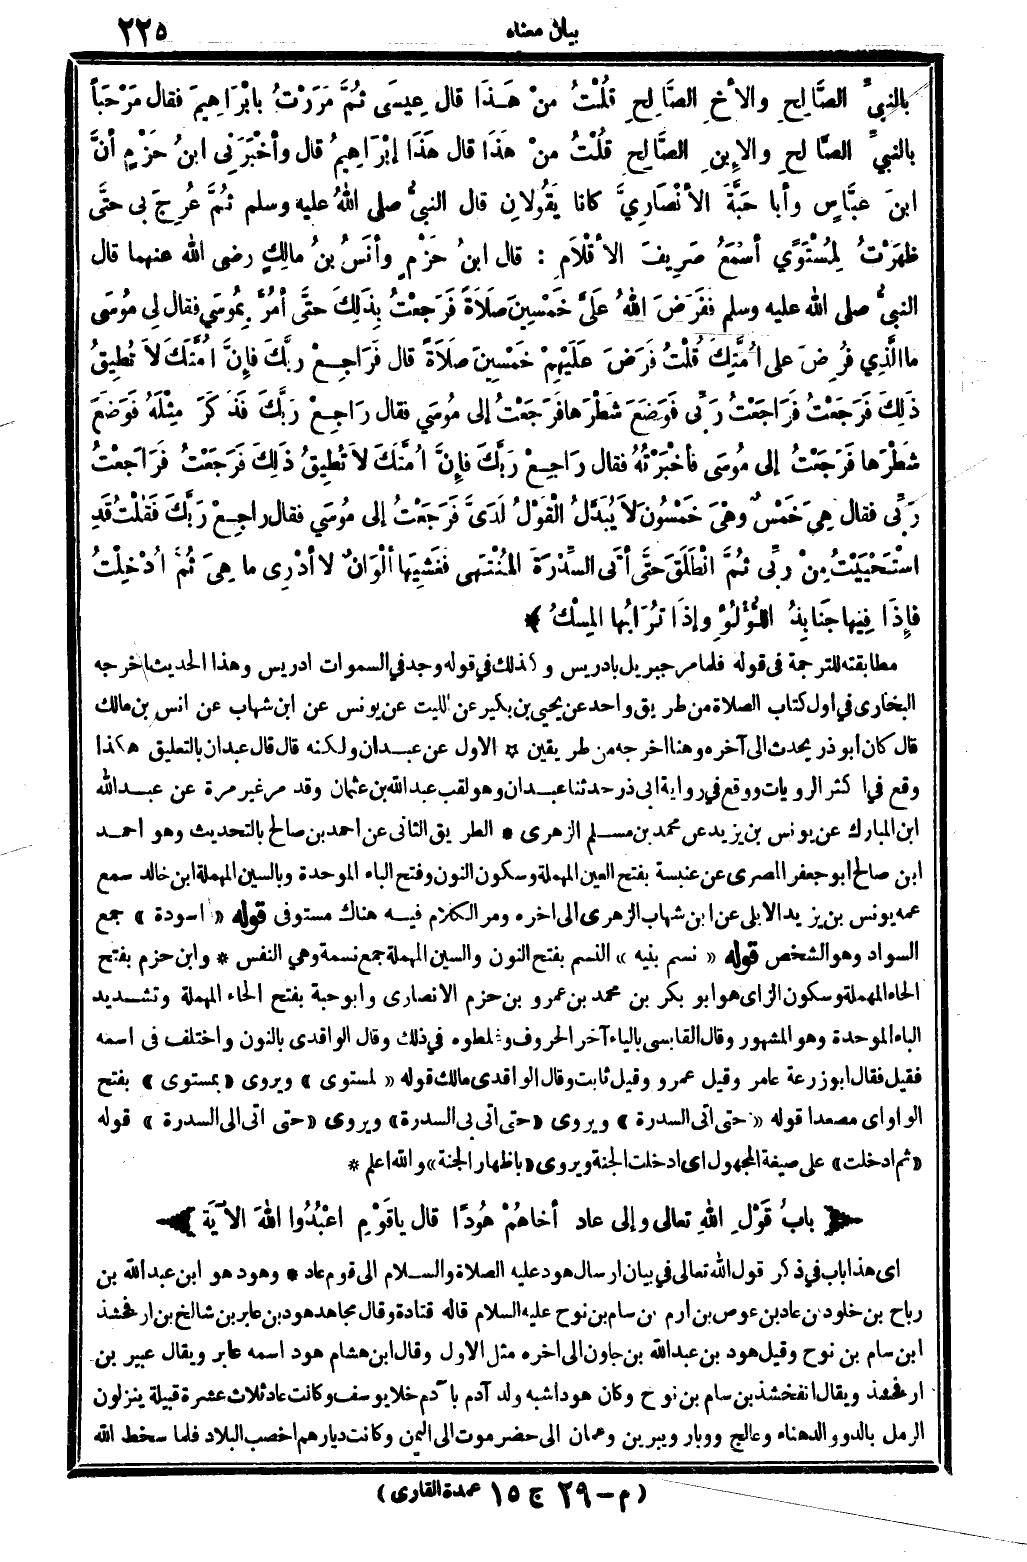 بيان معناه ٢٢٥
بالنبيِّ الصَّالِحِ والأخِ الصَّالِحِ قُلْتُ منْ هَـذَا قال عِيسَى ثُمَّ مَرَرْتُ بابْرَاهِيمَ فقال مَرْحَباً
بالنبيِّ الصَّالِحِ والإبنِ الصَّالِحِ قُلْتُ منْ هَذَا قال هَذَا إبْرَاهِيمُ قال وأخْبَرَنِى ابنُ حَزْمٍ أنَّ
ابنَ عبَّاسٍ وأبا حَبَّةَ الأنْصَارِيَّ كانا يَقُولانِ قال النبيُّ صلى اللهُ عليه وسلم ثُمَّ عُرِجَ بى حتَّى
ظهَرْتُ لِمُسْتَوًي أسْمَعُ صَرِيفَ الأقْلَامِ : قال ابنُ حَزْمٍ وأنَسُ بنُ مالِكٍ رضى الله عنهما قال
النبيُّ صلى الله عليه وسلم ففَرَضَ اللهُ عَلَيَّ خَمْسِينَ صَلَاةً فَرَجَعْتُ بِذَلِكَ حتَّى أمُرَّ بِمُوسَي فقال لِى مُوسَى
ماالَّذِي فُرِضَ على اُمَّتِكَ قُلْتُ فَرَضَ عَلَيْهِمْ خَمْسِينَ صَلَاةً قال فَرَاجِعْ ربَّكَ فإنَّ اُمَّتَكَ لاَ تُطِيقُ
ذَلِكَ فَرَجَعْتُ فَرَاجَعْتُ رَبِّى فَوَضَعَ شَطْرَها فَرَجَعْتُ إلى مُوسَي فقال رَاجِعْ رَبَّكَ فَذَكَرَ مِثْلَهُ فَوَضَعَ
شَطْرَها فَرَجَعْتُ إلى مُوسَى فأخْبَرْتُهُ فقال رَاجِعْ رَبَّكَ فإنَّ اُمَّتَكَ لاَ تُطِيقُ ذَلِكَ فَرَجَعْتُ فَرَاجَعْتُ
رَبِّى فقال هِيَ خَمْسٌ وهْىَ خَمْسُونَ لاَ يُبَدَّلُ الْقَوْلُ لَدَىَّ فَرَجَعْتُ إلى مُوسَي فقال راجِعْ رَبَّكَ فَقُلْتُ قَدِ
اسْتَحْيَيْتُ مِنْ رَبِّى ثُمَّ انْطَلَقَ حتَّى أتَى السِّدْرَةَ المُنْتَهَى فَغَشِيَها ألْوَانٌ لاأدْرِى ما هِىَ ثُمَّ اُدْخِلْتُ
فإذَا فِيها جَنَابِذُ اللُّؤْلُؤِ وإذَا تُرَابُها المِسْكُ ﴾
مطابقته للترجمة فى قوله فلما مر جبريل بادريس وكذلك في قوله وجد في السموات ادريس وهذا الحديث اخرجه
البخارى في اول كتاب الصلاة من طريق واحد عن يحيى بن بكير عن الليث عن يونس عن ابن شهاب عن انس بن مالك
قال كان أبو ذر يحدث الى آخره وهنا اخرجه من طريقين * الاول عن عبـدان ولكنه قال قال عبدان بالتعليق هكذا
وقع في اكثر الرويات ووقع في رواية ابى ذر حدثنا عبـدان وهو لقب عبدالله بن عثمان وقد مر غير مرة عن عبـدالله
ابن المبارك عن يونس بن يزيد عن محمد بن مسـلم الزهرى * الطريق الثانى عن احمد بن صالح بالتحديث وهو احمـد
ابن صالح ابو جعفر المصرى عن عنبسة بفتح العين المهملة وسكون النون وفتح الباء الموحدة وبالسين المهملة ابن خالد سمع
عمه يونس بن يزيد الايلى عن ابن شهاب الزهرى الى اخره ومر الكلام فيـه هناك مستوفى قوله « اسودة » جمع
السواد وهو الشخص قوله « نسم بنيه » النسم بفتح النون والسين المهملة جمع نسمة وهي النفس * وابن حزم بفتح
الحاء المهملة وسكون الزاى هو ابو بكر بن محمد بن عمرو بن حزم الانصارى وابوحبة بفتح الحاء المهملة وتشـديد
الباء الموحدة وهو المشهور وقال القابسى بالياء آخر الحروف وغلطوه في ذلك وقال الواقدى بالنون واختلف فى اسمه
فقيل فقال ابو زرعة عامر وقيل عمرو وقيل ثابت وقال الواقدى مالك قوله « لمستوى » ويروى « بمستوى » بفتح
الواو اى مصعدا قوله « حتى اتى السدرة » ويروى « حتى أتى بى السدرة» ويروى « حتى اتى الى السدرة » قوله
« ثم ادخلت » على صيغة المجهول اى ادخلت الجنة ويروى « باظهار الجنة» والله اعلم *
﴿ بابُ قَوْلِ اللهِ تعالى وإلى عاد أخاهُمْ هُودًا قال ياقَوْمِ اعْبُدُوا اللهَ الآيَةَ ﴾
اى هذا باب في ذكر قول الله تعالى في بيان ارسال هود عليه الصلاة والسـلام الى قوم عاد * وهود هو ابن عبدالله بن
رباح بن خلود بن عاد بن عوص بن ارم بن سام بن نوح عليه السلام قاله قتادة وقال مجاهد هود بن عابر بن شالخ بن ارفخشذ
ابن سام بن نوح وقيل هود بن عبدالله بن جاون الى اخره مثل الاول وقال ابن هشام هود اسمه عابر ويقال عبير بن
ارفخشذ ويقال انفخشذ بن سام بن نوح وكان هود اشبه ولد آدم بآدم خلا يوسف وكانت عاد ثلاث عشرة قبيلة ينزلون
الرمل بالدو والدهناء وعالج ووبار ويبرين وعمان الى حضرموت الى اليمن وكانت ديارهم اخصب البلاد فلما سخط الله
( م – ٢٩ ج ١٥ عمدة القارى )